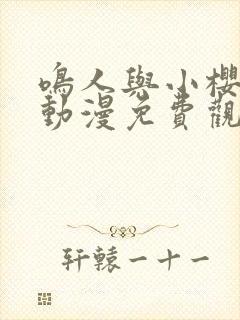 鳴人與小櫻
動漫免費觀
轩轅一十一